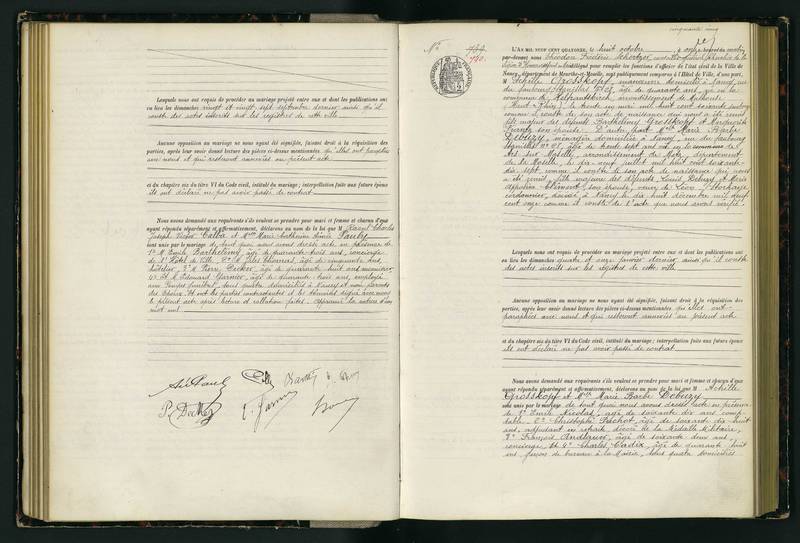 Lesquels nous ont requis de procéder au mariage projeté entre eux et dont les publications ont
eu lieu les dimanches vingt et vingt sept septembre dernier ainsi qu'il
conste des actes inscrits sur les registres de cette ville
Aucune opposition au mariage ne nous ayant été signifiée, faisant droit à la réquisition des
parties, après leur avoir donné lecture des pièces ci-dessus mentionnées qu'elles ont paraphées
avec nous et qui resteront annexées au présent acte
et du chapitre six du titre VI du Code civil, intitulé du mariage; interpellation faite aux futurs époux
ils ont déclaré ne pas avoir passé de contrat
Nous avons demandé aux requérants s'ils veulent se prendre pour mari et femme et chacun d'eux
ayant répondu séparément et affirmativement, déclarons au nom de la loi que M Raoul Charles
Joseph Victor et Mlle Marie Catherine Aimée
sont unis par le mariage de tout quoi nous avons dressé acte en présence de
1° M. Emile Barthélemy, âgé de quarante trois ans, concierge
de l'Hôtel de Ville, 2° M. Jules âgé de cinquante ans,
hôtelier, 3° M. Pierre Decker, âgé de quarante huit ans,
et 4° M. Edouard Garnier, âgé de quarante trois ans, employé
aux Pompes funèbres, tous quatre domiciliés à Nancy et non parents
des époux. Et ont les parties contractantes et les témoins signé avec nous
le présent acte après lecture et collation faites.
mot nul
P. Decker
N°
790.
L'AN MIL NEUF CENT QUATORZE, le huit octobre à onze heures du matin
par-devant nous Théodore Frédéric
délégué pour remplir les fonctions d'officier de l'état civil de la Ville de
Nancy, département de Meurthe-et-Moselle, sont publiquement comparus à l'Hôtel de Ville, d'une part,
M Achille Grosskopf, manœuvre, domicilié à Nancy, rue
du faubourg Stanislas N° âgé de quarante ans, né en la
commune de arrondissement de Mulhouse
(Haut-Rhin) le trente un mai mil huit cent soixante quatorze
comme il conste de son acte de naissance qui nous a été remis
fils majeur des défunts Barthélemy Grosskopf et Marguerite
son épouse. D'autre part Mme Marie Barbe
Debuzy, ménagère, domiciliée à Nancy, rue du faubourg
Stanislas N° âgée de trente sept ans, née en la commune de
Ars-sur-Moselle, arrondissement de Metz, département
de la Moselle, le dix neuf juillet mil huit cent soixante-
dix sept, comme il conste de son acte de naissance qui nous
a été remis, fille majeure des défunts Louis Debuzy et Marie
Clément, son épouse, veuve de Léon
cordonnier, décédé à Nancy le dix huit décembre mil neuf
cent onze comme il conste de l'acte que nous avons vérifié.
Lesquels nous ont requis de procéder au mariage projeté entre eux et dont les publications ont
eu lieu les dimanches quatre et onze dernier ainsi qu'il conste
des actes inscrits sur les registres de cette ville
Aucune opposition au mariage ne nous ayant été signifiée, faisant droit à la réquisition des
parties, après leur avoir donné lecture des pièces ci-dessus mentionnées qu'elles ont
paraphées avec nous et qui resteront annexées au présent acte
et du chapitre six du titre VI du Code civil, intitulé du mariage; interpellation faite aux futurs époux
ils ont déclaré ne pas avoir passé de contrat
Nous avons demandé aux requérants s'ils veulent se prendre pour mari et femme et chacun d'eux
ayant répondu séparément et affirmativement, déclarons au nom de la loi que M Achille
Grosskopf et Mme Marie Barbe Debuzy
sont unis par le mariage de tout quoi nous avons dressé acte en présence
de 1° Emile Nicolas, âgé de soixante dix ans, comp-
table, 2° Christophe Pachot, âgé de soixante dix huit
ans, adjudant en retraite, décoré de la Médaille Militaire,
3° François âgé de soixante deux ans,
concierge et 4° Charles Cadix, âgé de quarante huit
ans, garçon de bureau à la Mairie, tous quatre domiciliés